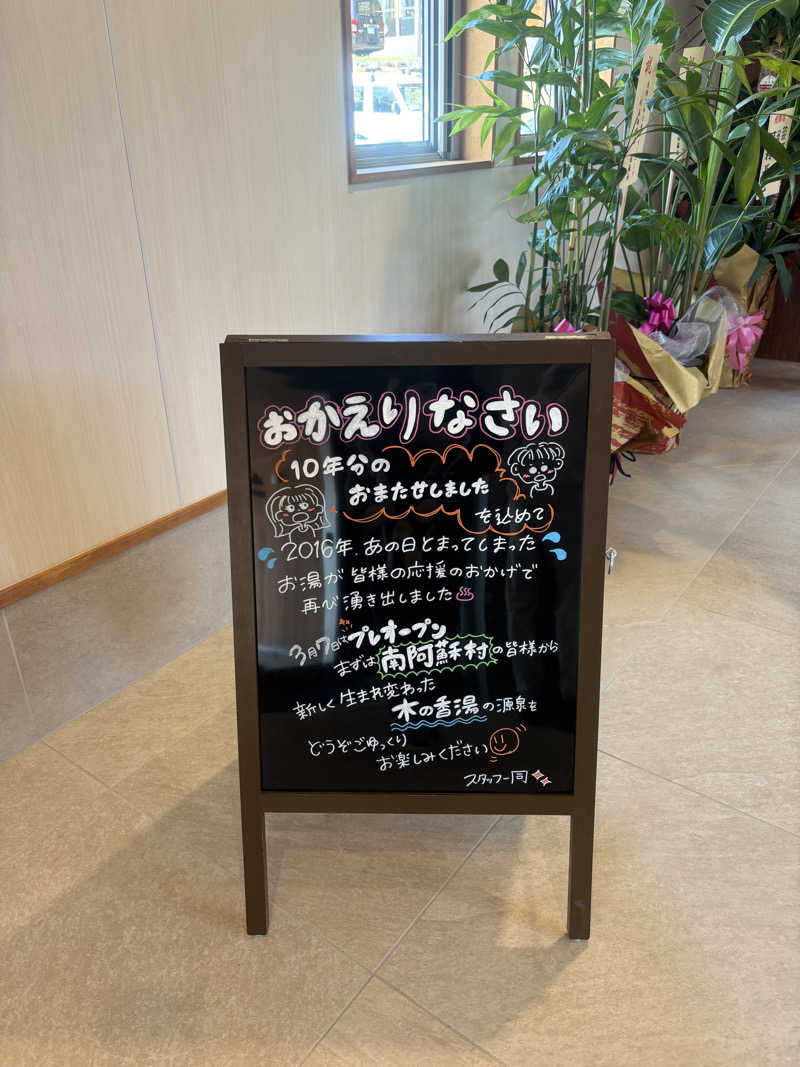 おかえりなさい
10年分の
おまたせしました
を込めて
2016年、あの日とまってしまった
お湯が皆様の応援のおかげで
再び湧き出しました♨
3月7日はプレオープン
まずは南阿蘇村の皆様から
新しく生まれ変わった
木の香湯の源泉を
どうぞごゆっくり
お楽しみください
スタッフ一同
祝